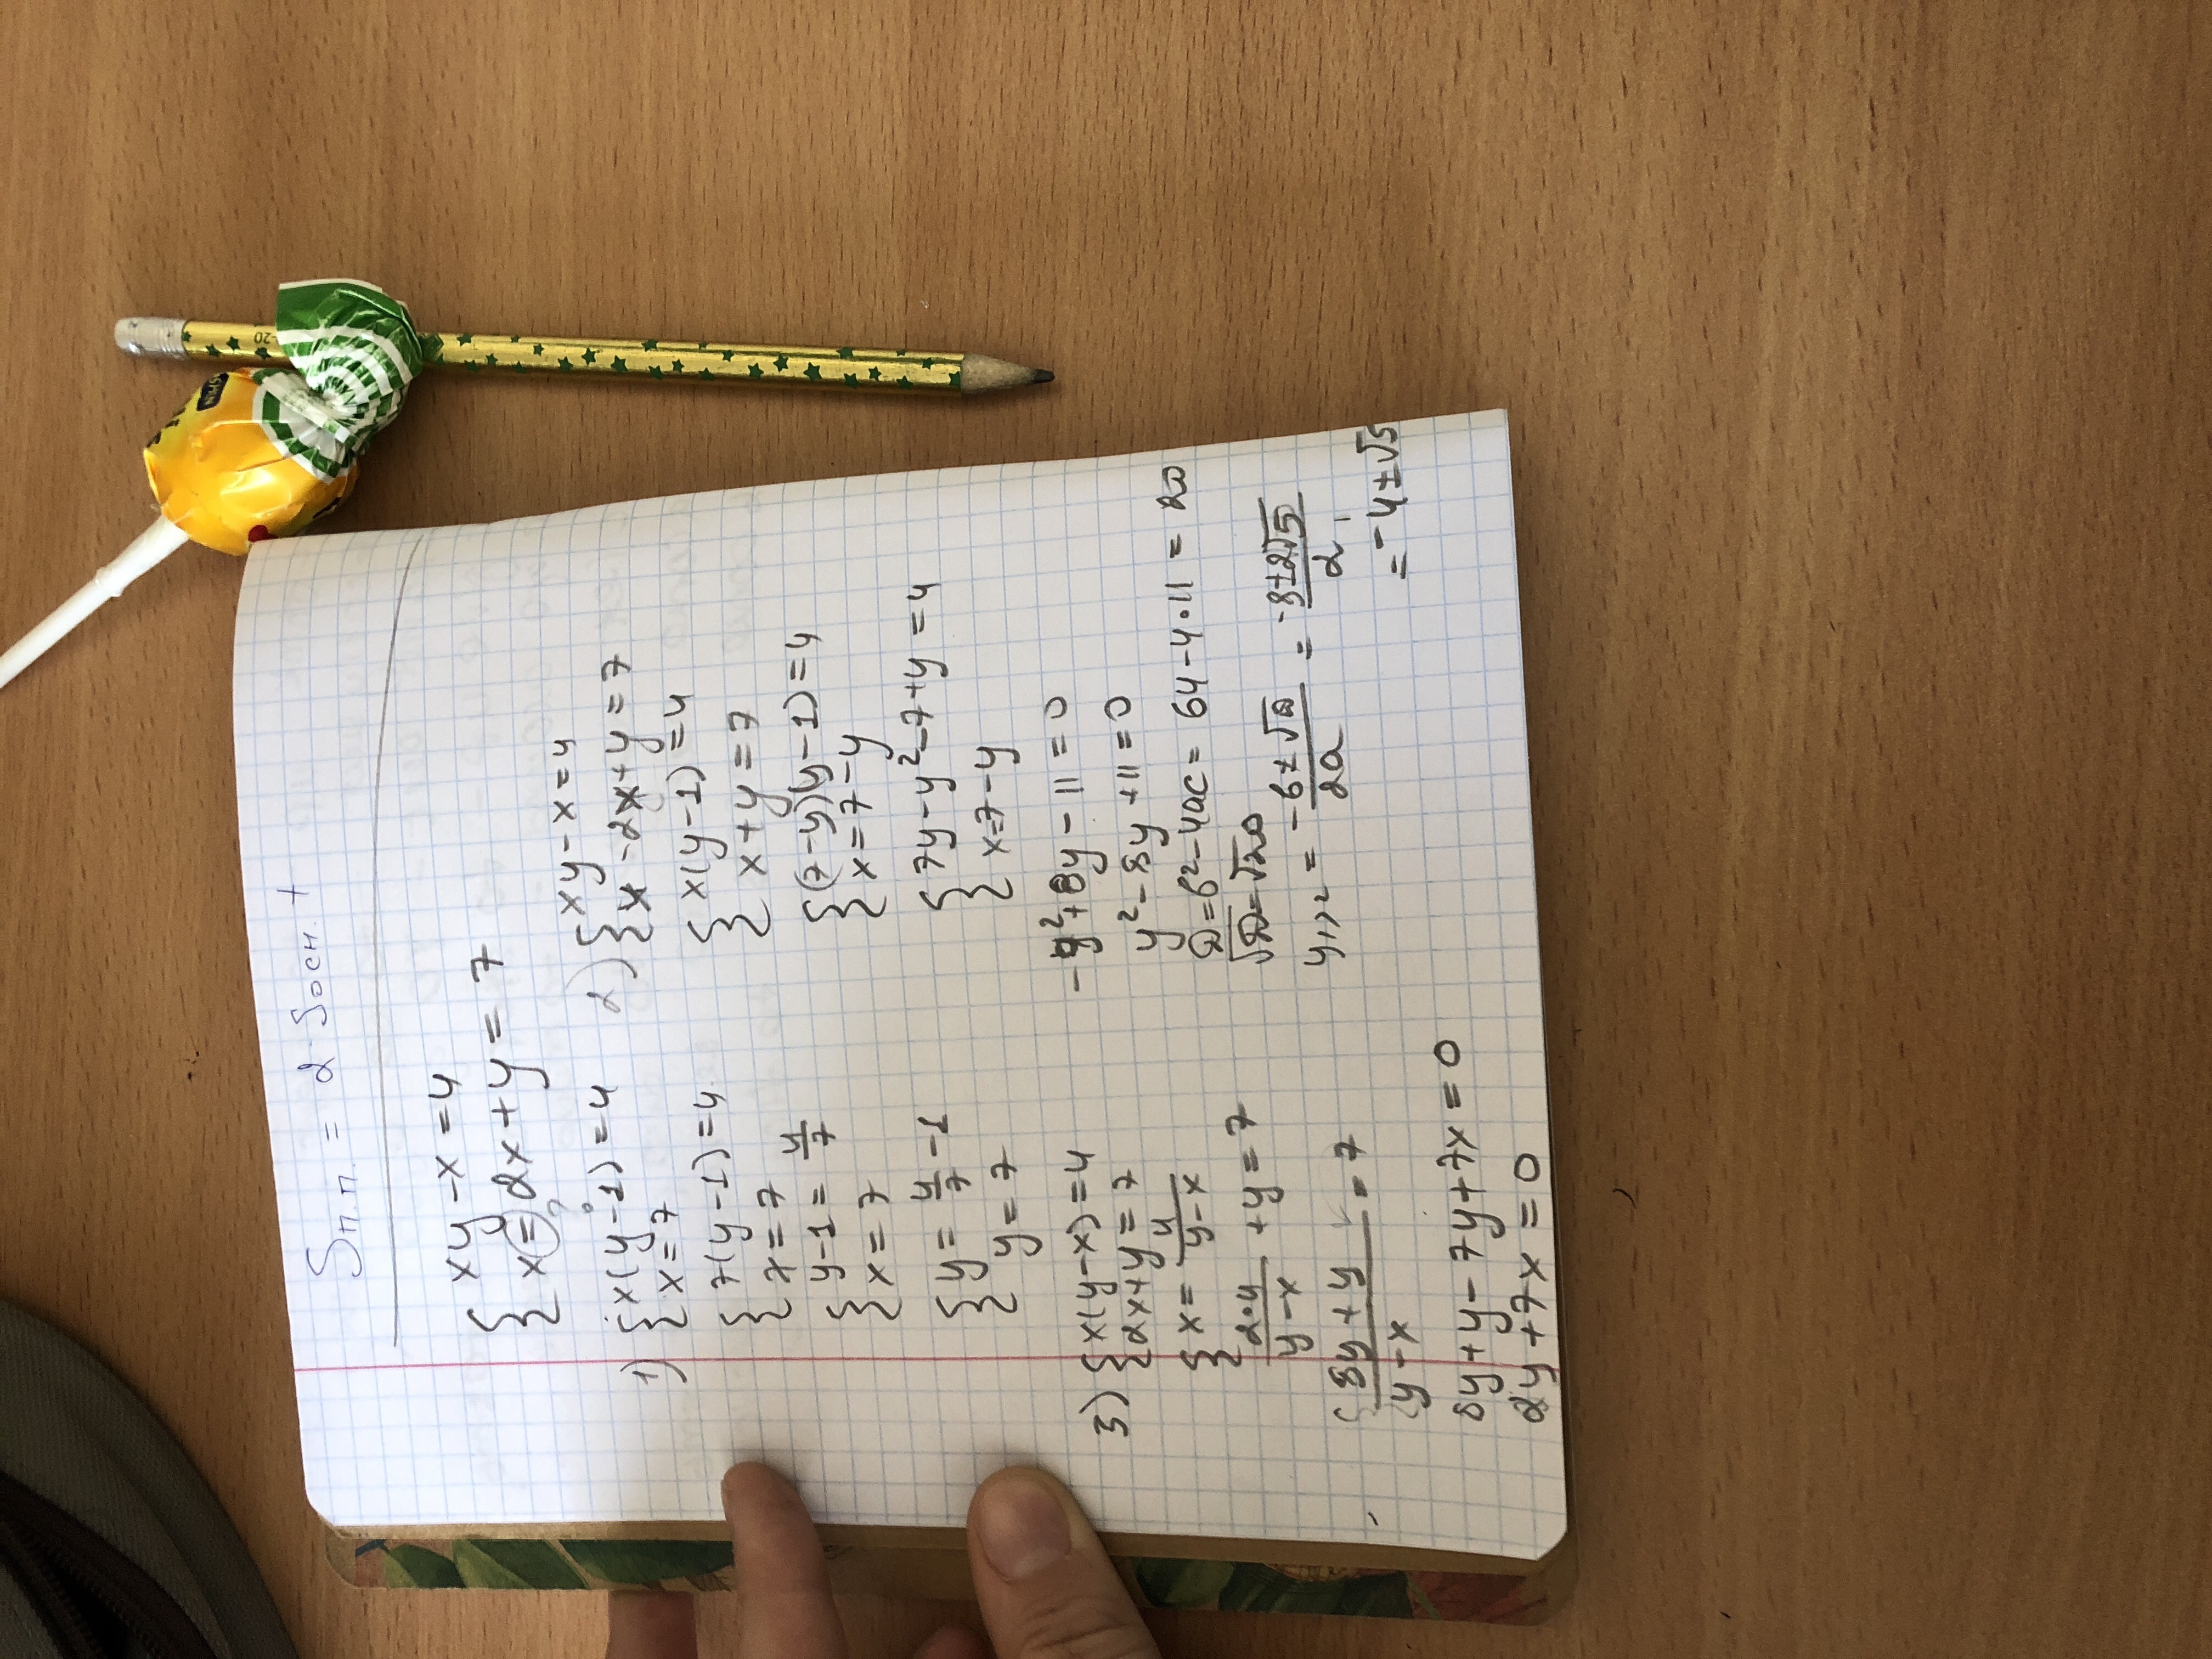 Sп.п. = 2 Sосн. +
{ xy - x = 4
{ x = 2x + y = 7
1) { x(y - 1) = 4
{ x = 7
{ 7(y - 1) = 4
{ x = 7
{ y - 1 = 4/7
{ x = 7
{ y = 4/7 - 1
{ y = 7
2) { xy - x = 4
{ x - 2x + y = 7
{ x(y - 1) = 4
{ x + y = 7
{ (7 - y)(y - 1) = 4
{ x = 7 - y
{ 7y - y² - 7 + y = 4
{ x = 7 - y
- y² + 8y - 11 = 0
y² - 8y + 11 = 0
D = b² - 4ac = 64 - 4·11 = 20
√D = √20
y1,2 = -b ± √D / 2a = -8 ± 2√5 / 2
= -4 ± √5
3) { x(y - x) = 4
{ 2x + y = 7
{ x = 4 / y - x
{ 2·4 / y - x + y = 7
{ 8y + y / y - x = 7
8y + y - 7y + 7x = 0
2y + 7x = 0